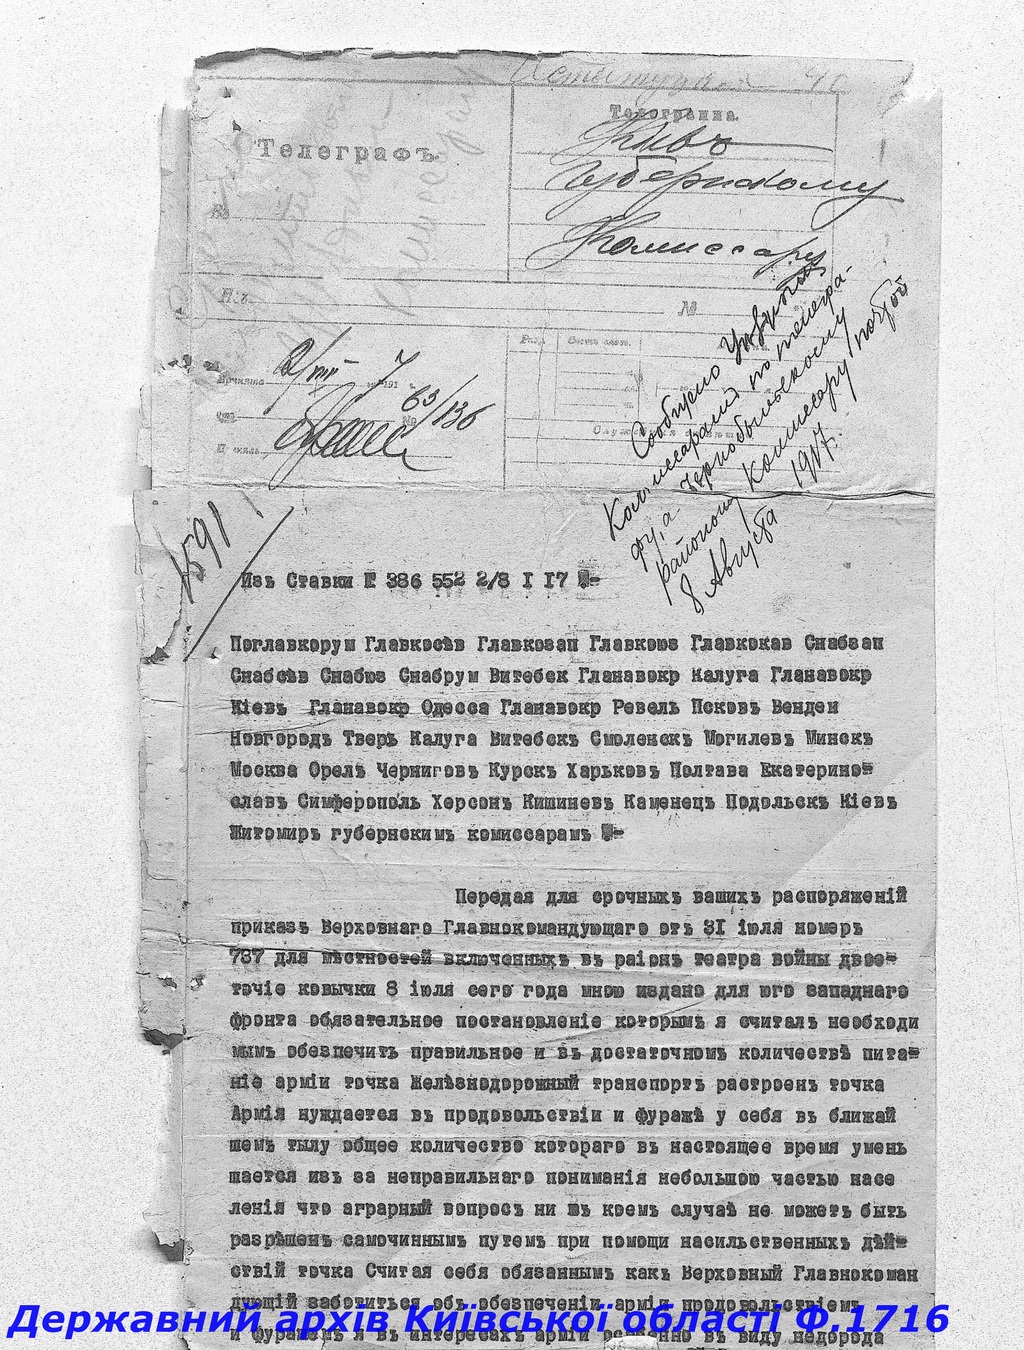 Телеграфъ.
Телеграмма.
Кіевъ
Губернскому
Комиссару
№
Принята
2/VIII 7
63/136
Сообщено Уѣзднымъ
Комиссарамъ по телегра-
фу, а Чернобыльскому
районному Комиссару почтой
8 Августа 1917.
1591
Изъ Ставки № 386 552 2/8 I I7 №-
Поглавкорум Главкосѣв Главкозап Главкоюз Главкокав Снабзап
Снабсѣв Снабюз Снабрум Витебск Гланавокр Калуга Гланавокр
Кіевъ Гланавокр Одесса Гланавокр Ревель Псковъ Венден
Новгородъ Тверь Калуга Витебскъ Смоленскъ Могилевъ Минскъ
Москва Орелъ Черниговъ Курскъ Харьковъ Полтава Екатерино=
славъ Симферополь Херсонъ Кишиневъ Каменецъ Подольскъ Кіевъ
Житомиръ губернскимъ комиссарамъ №-
Передая для срочныхъ вашихъ распоряженій
приказъ Верховнаго Главнокомандующаго отъ 3I іюля номеръ
737 для мѣстностей включенныхъ въ раіонъ театра войны двое=
точіе ковычки 8 іюля сего года мною издано для юго западнаго
фронта обязательное постановленіе которымъ я считалъ необходи
мымъ обезпечить правильное и въ достаточном количествѣ пита=
ніе арміи точка Желѣзнодорожный транспортъ растроен точка
Армія нуждается въ продовольствіи и фуражѣ у себя въ ближай
шемъ тылу общее количество котораго въ настоящее время умень
шается изъ за неправильнаго пониманія небольшою частью насе
ленія что аграрный вопросъ ни въ коемъ случаѣ не можетъ быть
разрѣшенъ самочиннымъ путемъ при помощи насильственныхъ дѣй=
ствій точка Считая себя обязаннымъ какъ Верховный Главнокоман
дующій заботиться объ обезпеченіи арміи продовольствіемъ
и фуражемъ и въ интересахъ арміи особенно въ виду недорода
Державний архів Київської області Ф.1716